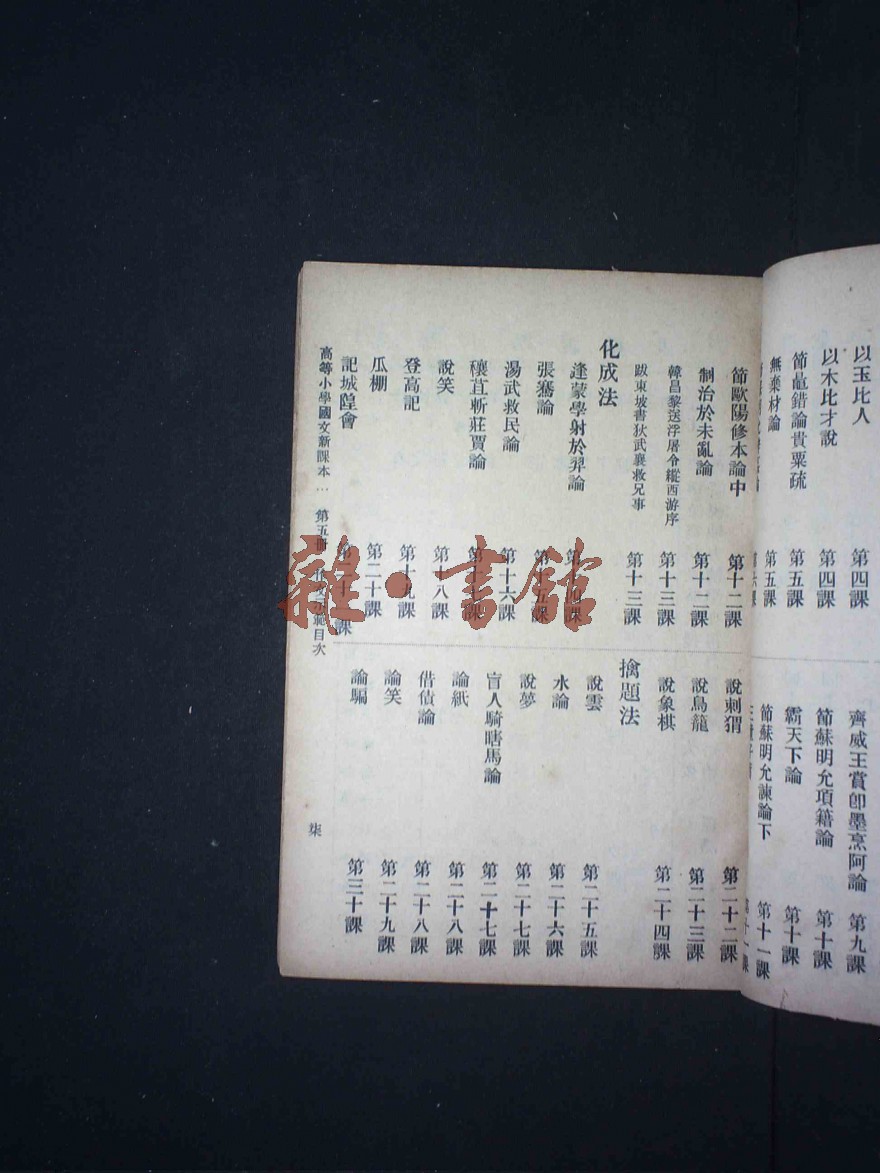 以玉比人 第四課
以木比才說 第四課
節鼂錯論貴粟疏 第五課
無棄材論 第五課
齊威王賞卽墨烹阿論 第九課
節蘇明允項籍論 第十課
霸天下論 第十課
節蘇明允諫論下 第十一課
節歐陽修本論中 第十二課
制治於未亂論 第十二課
韓昌黎送浮屠令縱西游序 第十三課
跋東坡書狄武襄救兄事 第十三課
化成法
逢蒙學射於羿論
張騫論
湯武救民論 第十六課
穰苴斬莊賈論
說笑 第十八課
登高記 第十九課
瓜棚 第二十課
記城隍會
說刺猬 第二十二課
說鳥籠 第二十三課
說象棋 第二十四課
擒題法
說雲 第二十五課
水論 第二十六課
說夢 第二十七課
盲人騎瞎馬論 第二十七課
論紙 第二十八課
借債論 第二十八課
論笑 第二十九課
論騙 第三十課
高等小學國文新課本 第五冊 目次
柒
雜·書館